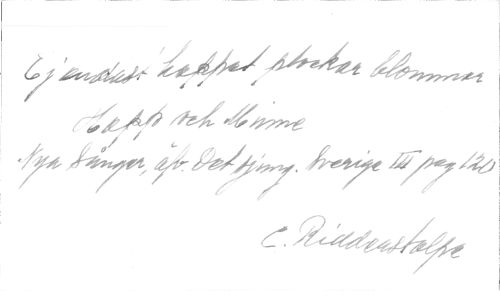 Ej endast hoppet plockar blommor
Hopp och Minne
Nya Sånger, äfv. Det sjung. Sverige III pag 120
C. Ridderstolpe